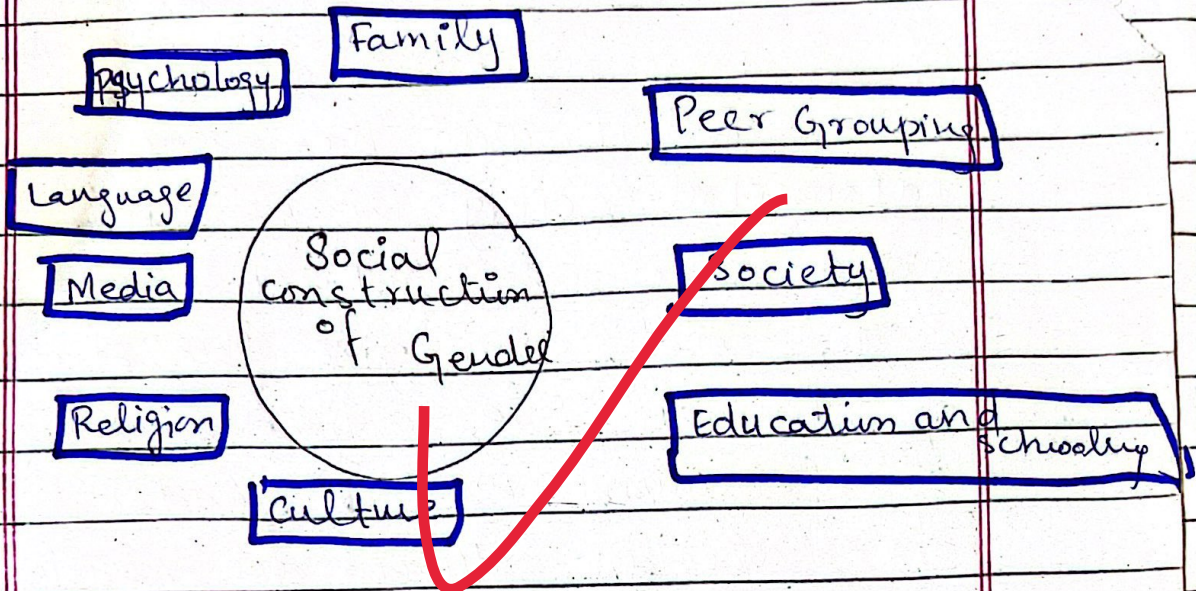 Family
Psychology
Peer Grouping
Language
Social
construction
of Gender
Society
Media
Religion
Education and
Schooling
Culture